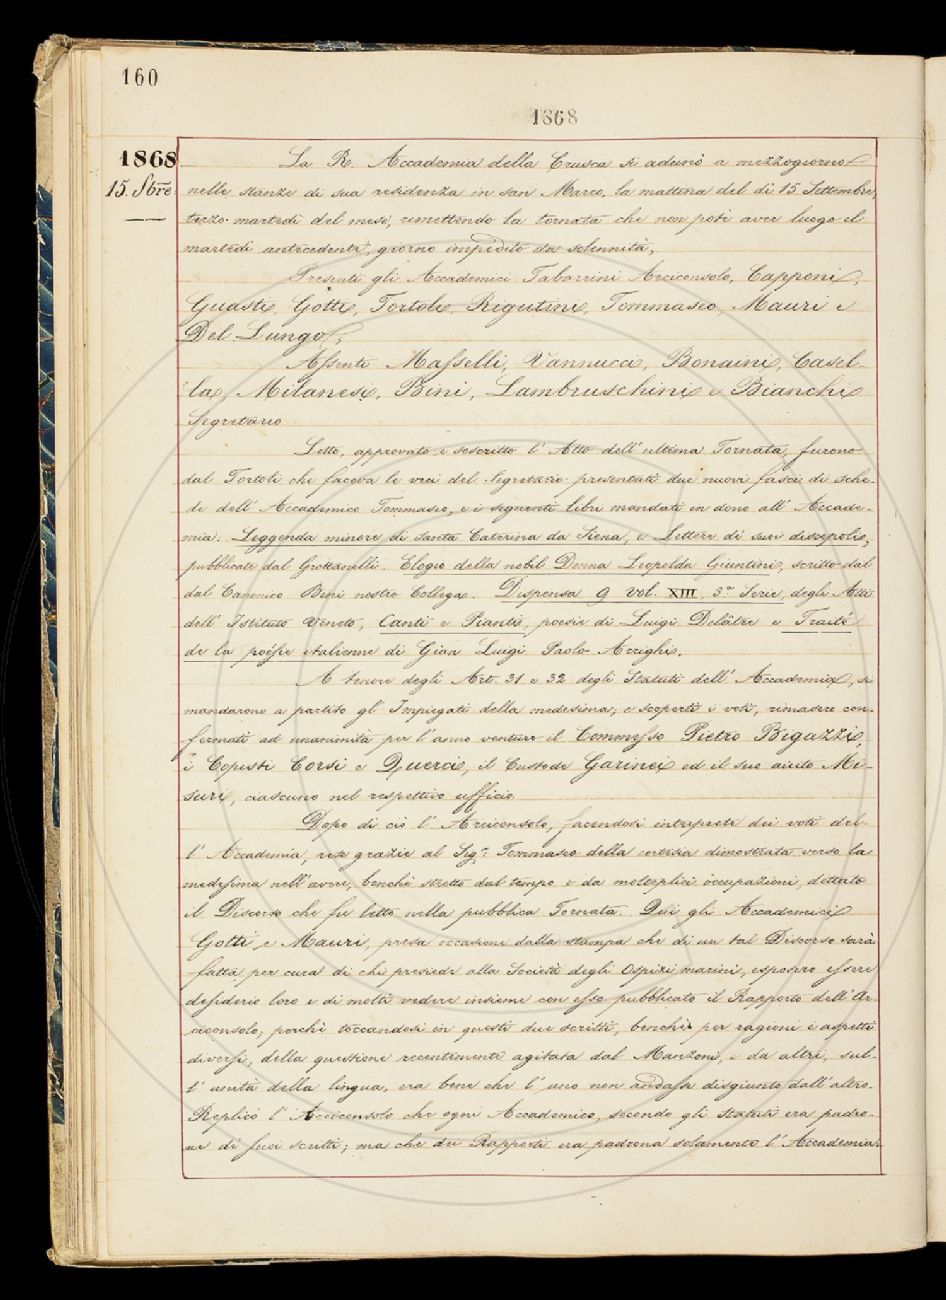 160
1868
1868
15. 7bre
La R. Accademia della Crusca si adunò a mezzogiorno
nelle stanze di sua residenza in San Marco, la mattina del dì 15 Settembre,
terzo martedì del mese, rimettendo la tornata che non potè aver luogo il
martedì antecedente, giorno impedito da solennità.
Presenti gli Accademici Tabarrini Arciconsolo, Capponi,
Guasti, Gotti, Tortoli, Rigutini, Tommaseo, Mauri e
Del Lungo;
Assenti Masselli, Vannucci, Bonaini, Casel-
la, Milanesi, Bini, Lambruschini e Bianchi
Segretario
Letto, approvato e soscritto l' Atto dell' ultima Tornata, furono
dal Tortoli che faceva le veci del Segretario presentati due nuovi fasci di sche-
de dell' Accademico Tommaseo, e i seguenti libri mandati in dono all' Accade-
mia: Leggenda minore di Santa Caterina da Siena, e Lettere di suoi discepoli,
pubblicate dal Grottanelli. Elogio della nobil Donna Leopolda Giuntini, scritto dal
dal Canonico Bini nostro Collega. Dispensa 9 Vol. XIII, 3a Serie, degli Atti
dell' Istituto Veneto, Canti e Pianti, poesie di Luigi Delâtre e Traité
de la poésie italienne di Gian Luigi Paolo Arrighi.
A tenore degli Art. 31 e 32 degli Statuti dell' Accademia, si
mandarono a partito gl' Impiegati della medesima; e scoperti i voti, rimasero con-
fermati ad unanimità per l'anno venturo il Commesso Pietro Bigazzi,
i Copisti Corsi e Querci, il Custode Garinei ed il suo aiuto Mi-
suri, ciascuno nel respettivo ufficio.
Dopo di ciò l' Arciconsolo, facendosi interprete dei voti del-
l' Accademia, rese grazie al Sigr. Tommaseo della cortesia dimostrata verso la
medesima nell'avere, benchè stretto dal tempo e da molteplici occupazioni, dettato
il Discorso che fu letto nella pubblica Tornata. Qui gli Accademici
Gotti e Mauri, presa occasione dalla stampa che di un tal Discorso sarà
fatta per cura di chi presiede alla Società degli Ospizi marini, esposero essere
desiderio loro e di molti vedere insieme con esso pubblicato il Rapporto dell'Ar-
ciconsolo; perchè toccandosi in questi due scritti, benchè per ragioni e aspetti
diversi, della questione recentemente agitata dal Manzoni, e da altri, sul-
l' unità della lingua, era bene che l' uno non andasse disgiunto dall'altro.
Replicò l' Arciconsolo che ogni Accademico, secondo gli Statuti era padro-
ne di suoi scritti; ma che dei Rapporti era padrona solamente l' Accademia